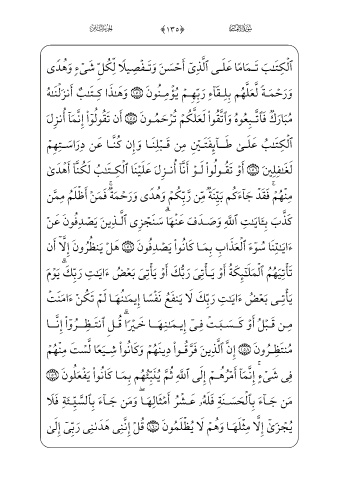 سُورَةُ الأَنْعَامِ ﴿١٣٥﴾ الجُزْءُ الثَّامِنُ
ٱلْكِتَٰبَ تَمَامًا عَلَى ٱلَّذِىٓ أَحْسَنَ وَتَفْصِيلًا لِّكُلِّ شَىْءٍ وَهُدًى
وَرَحْمَةً لَّعَلَّهُم بِلِقَآءِ رَبِّهِمْ يُؤْمِنُونَ ۝ وَهَٰذَا كِتَٰبٌ أَنزَلْنَٰهُ
مُبَارَكٌ فَٱتَّبِعُوهُ وَٱتَّقُوا۟ لَعَلَّكُمْ تُرْحَمُونَ ۝ أَن تَقُولُوٓا۟ إِنَّمَآ أُنزِلَ
ٱلْكِتَٰبُ عَلَىٰ طَآئِفَتَيْنِ مِن قَبْلِنَا وَإِن كُنَّا عَن دِرَاسَتِهِمْ
لَغَٰفِلِينَ ۝ أَوْ تَقُولُوا۟ لَوْ أَنَّآ أُنزِلَ عَلَيْنَا ٱلْكِتَٰبُ لَكُنَّآ أَهْدَىٰ
مِنْهُمْ ۚ فَقَدْ جَآءَكُم بَيِّنَةٌ مِّن رَّبِّكُمْ وَهُدًى وَرَحْمَةٌ ۚ فَمَنْ أَظْلَمُ مِمَّن
كَذَّبَ بِـَٔايَٰتِ ٱللَّهِ وَصَدَفَ عَنْهَا ۗ سَنَجْزِى ٱلَّذِينَ يَصْدِفُونَ عَنْ
ءَايَٰتِنَا سُوٓءَ ٱلْعَذَابِ بِمَا كَانُوا۟ يَصْدِفُونَ ۝ هَلْ يَنظُرُونَ إِلَّآ أَن
تَأْتِيَهُمُ ٱلْمَلَٰٓئِكَةُ أَوْ يَأْتِىَ رَبُّكَ أَوْ يَأْتِىَ بَعْضُ ءَايَٰتِ رَبِّكَ ۗ يَوْمَ
يَأْتِى بَعْضُ ءَايَٰتِ رَبِّكَ لَا يَنفَعُ نَفْسًا إِيمَٰنُهَا لَمْ تَكُنْ ءَامَنَتْ
مِن قَبْلُ أَوْ كَسَبَتْ فِىٓ إِيمَٰنِهَا خَيْرًا ۗ قُلِ ٱنتَظِرُوٓا۟ إِنَّا
مُنتَظِرُونَ ۝ إِنَّ ٱلَّذِينَ فَرَّقُوا۟ دِينَهُمْ وَكَانُوا۟ شِيَعًا لَّسْتَ مِنْهُمْ
فِى شَىْءٍ ۚ إِنَّمَآ أَمْرُهُمْ إِلَى ٱللَّهِ ثُمَّ يُنَبِّئُهُم بِمَا كَانُوا۟ يَفْعَلُونَ ۝
مَن جَآءَ بِٱلْحَسَنَةِ فَلَهُۥ عَشْرُ أَمْثَالِهَا ۖ وَمَن جَآءَ بِٱلسَّيِّئَةِ فَلَا
يُجْزَىٰٓ إِلَّا مِثْلَهَا وَهُمْ لَا يُظْلَمُونَ ۝ قُلْ إِنَّنِى هَدَىٰنِى رَبِّىٓ إِلَىٰ